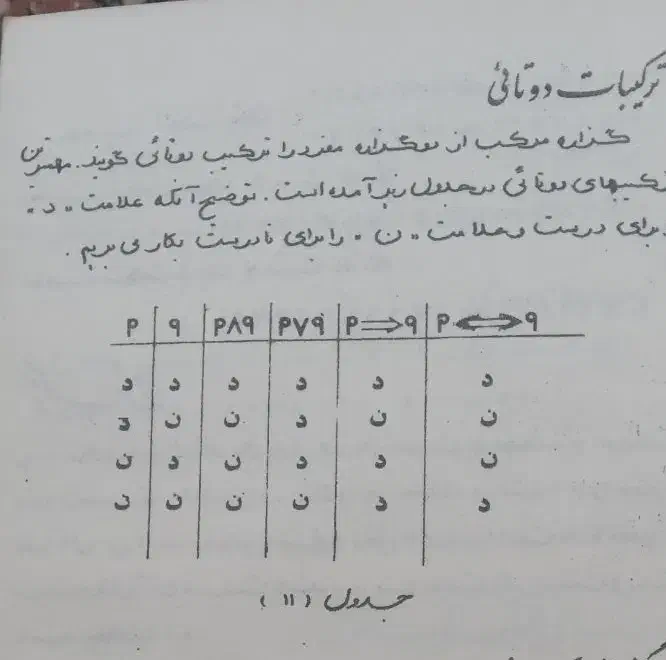 ترکیبات دوتائی
گزاره مرکب از دو گزاره مفرد را ترکیب دوتائی گویند. مهمترین
ترکیبهای دوتائی در جدول زیر آمده است. توضیح آنکه علامت «د»
برای درست و علامت «ن» را برای نادرست بکار می بریم.
p q p∧q p∨q p⟹q p⟺q
د د د د د د
د ن ن د ن ن
ن د ن د د ن
ن ن ن ن د د
جدول (۱۱)